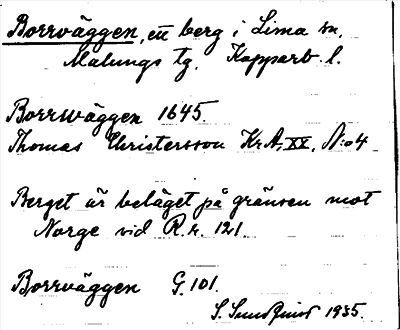 Borrväggen, ett berg i Lima sn.
Malungs tg. Kopparb. l.
Borrwäggen 1645.
Thomas Christersson KrA, XX, N:o 4
Berget är beläget på gränsen mot
Norge vid R.r. 121.
Borrväggen G. 101.
S. 1935.